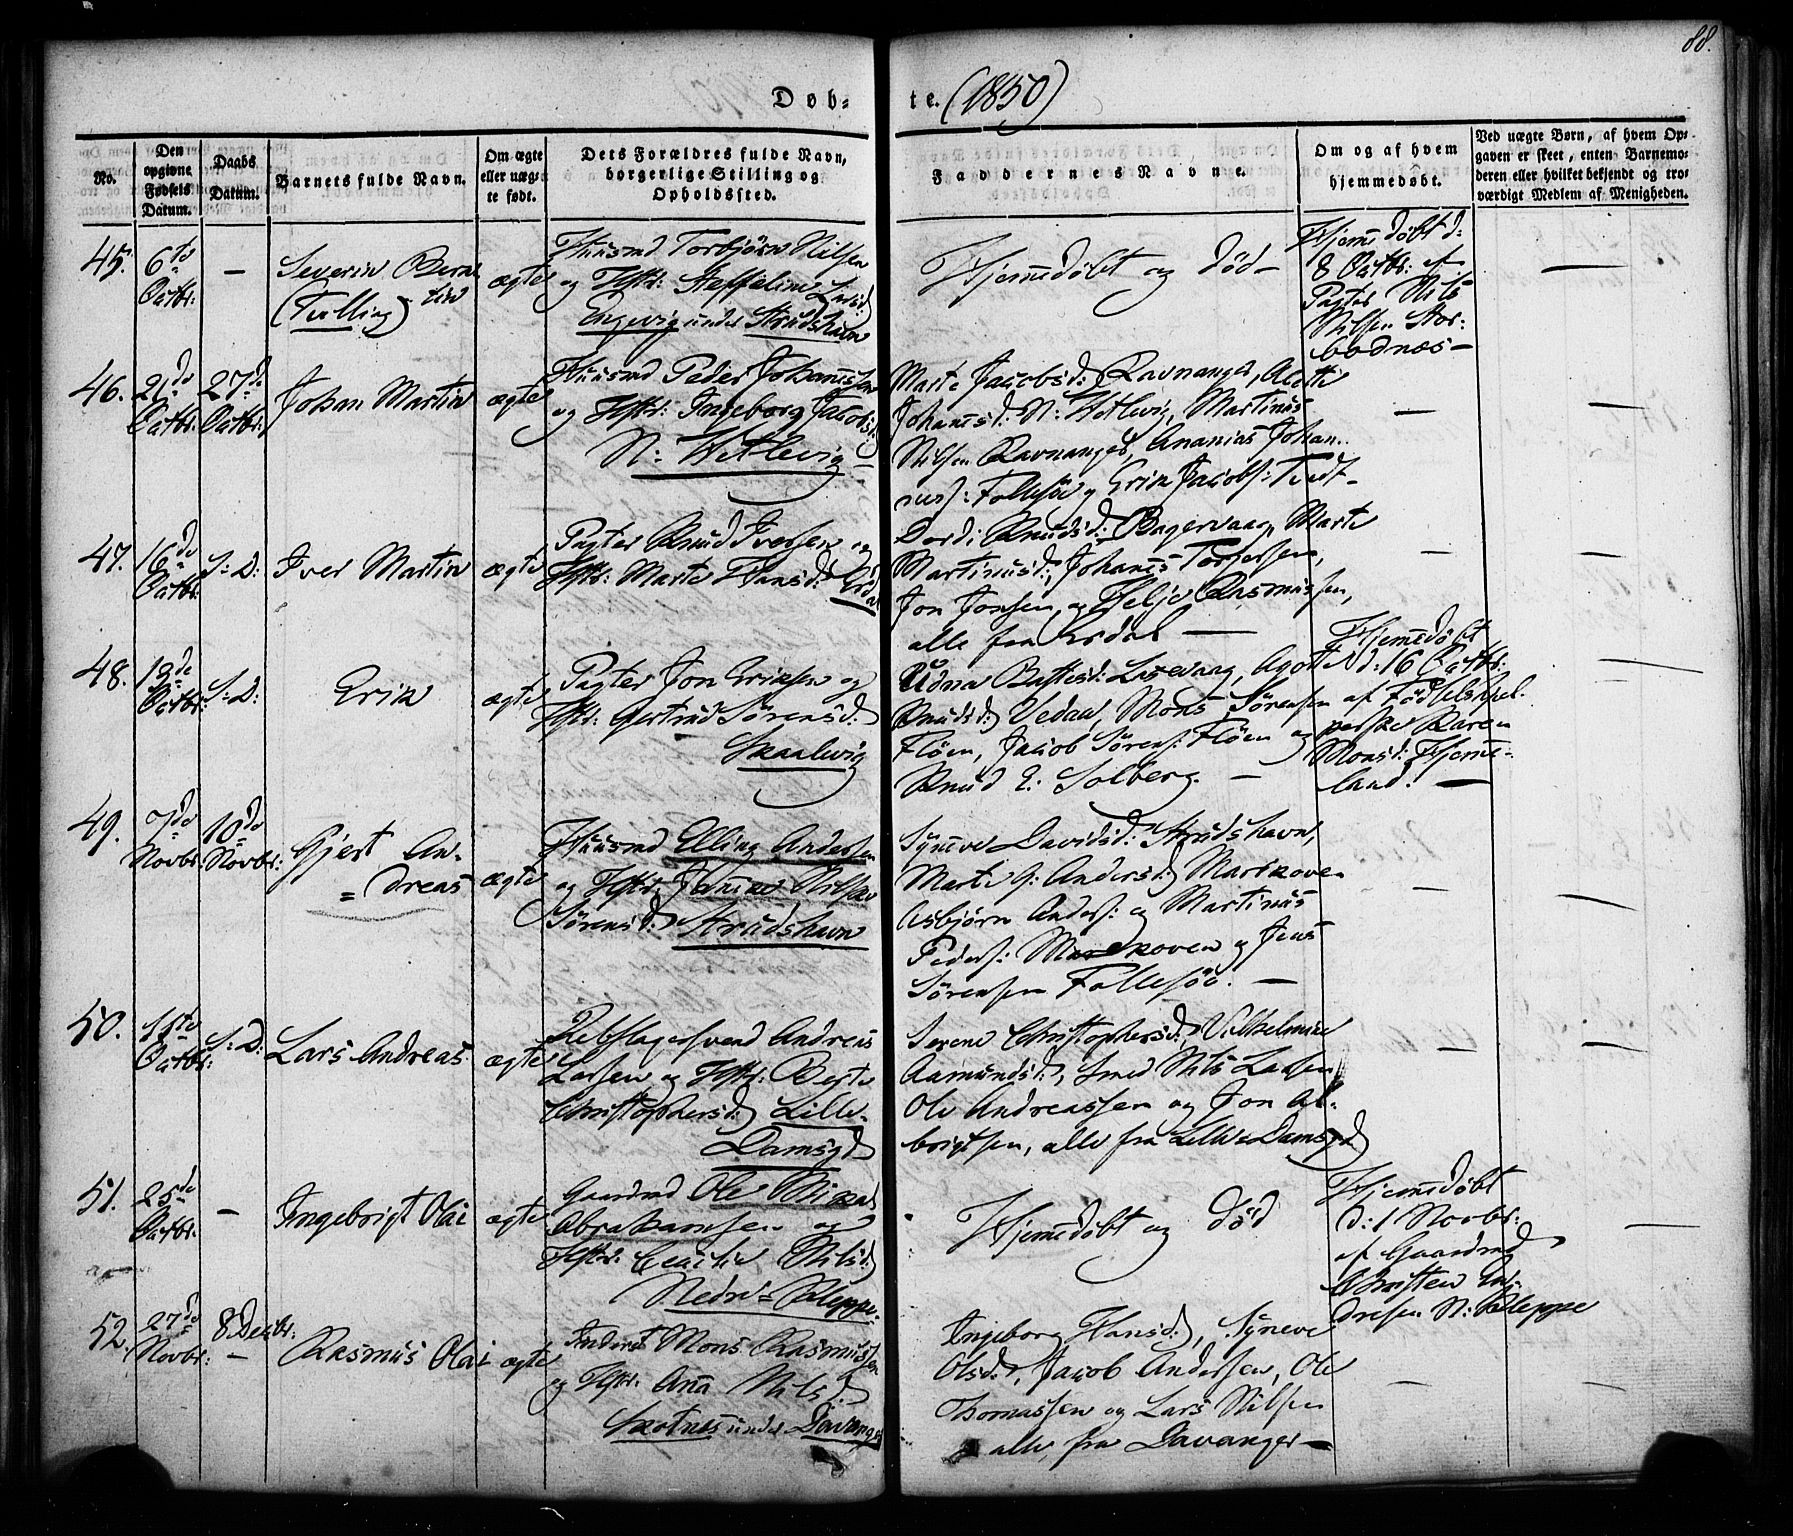 88.
Døb- te. (1850)
No.
Den opgivne Fødsels Datum.
Daabs Datum.
Barnets fulde Navn.
Om ægte eller uægte født.
Dets Forældres fulde Navn, borgerlige Stilling og Opholdssted.
Faddernes Navne.
Om og af hvem hjemmedøbt.
Ved uægte Børn, af hvem Opgaven er skeet, enten Barnemoderen eller hvilket bekjendt og troværdigt Medlem af Menigheden.
45. 6te Octbr: —
Severin Bern
(Tvilling) tin
ægte
Huusmd Torbjörn Nilsen
og Hstr: Steffelin Larsd:
Engevig under Strudshavn
Hjemmedöbt og död —
Hjemmedöbt d:
8 Octbr: af
Pagter Nils
Nilsen Stor:
bodnæs —
46. 21de Octbr: 27de Octbr:
Johan Martin
ægte
Huusmd Peder Johannessen
og Hstr: Ingeborg Jacobsd:
N: Vetlevig —
Marte Jacobsd: Ravnanger, Alette
Johannesd: N: Vetlevig, Martinus
Nilsen Ravnanger, Ananias Johan-
nes: Follesöe og Erik Jacobs: Tvedt —
47. 16de Octbr: S: D:
Iver Martin
ægte
Pagter Knud Iversen og
Hstr: Marte Hansd: Erdal
Dordi Knudsd: Bagervaag, Marte
Martinusd:, Johannes Torgersen,
Jon Jonsen, og Helje Rasmussen,
alle fra Erdal —
48. 13de Octbr: S: D:
Erik
ægte
Pagter Jon Eriksen og
Hstr: Gertrud Sörensd:
Skaalevig
Udna Battesd: Lorevaag, Agote
Knudsd: Vedaa, Mons Sörensen
Flöen, Jacob Sörens: Flöen og
Knud E: Solberg. —
Hjemmedöbt
d: 16 Octbr:
af Födselshjel-
perske Karen
Monsd: Hjemme-
land. —
49. 7de Novbr: 10de Novbr:
Gjert An-
= dreas
ægte
Huusmd Elling Andersen
og Hstr: Janike Nilske
Sörensd: Strudshavn
Synneve Davidsd: Strudshavn,
Marte G: Andersd: Marikoven
Asbjörn Anders: og Martinus
Peders: Marikoven og Jens
Sörensen Follesöe. —
50. Octbr: S: D:
Lars Andreas
ægte
Rebslagersvend Andreas
Larsen og Hstr: Berte
Christophersd: Lille-
Damsgd
Serene Christophersd:, Vilhelmine
Aamundsd:, Smed Nils Larsen
Ole Andreassen og Jon Al-
brigtsen, alle fra Lille-Damsgd
51. 25de Octbr: —
Ingebrigt Olai
ægte
Gaardmd Ole Mikal
Abrahamsen og
Hstr: Ceicilie Nilsd:
Nedre Kleppe.
Hjemmedöbt og död
Hjemmedöbt
d: 1 Novbr:
af Gaardmd
Christen An-
dresen N: Kleppe
52. 27de Novbr: 8 Decbr: —
Rasmus Olai
ægte
Inderst Mons Rasmussen
og Hstr: Anna Nilsd:
Skotnes under Davanger
Ingeborg Hansd:, Synneve
Olsd:, Jacob Andersen, Ole
Thomassen og Lars Nilsen
alle fra Davanger —